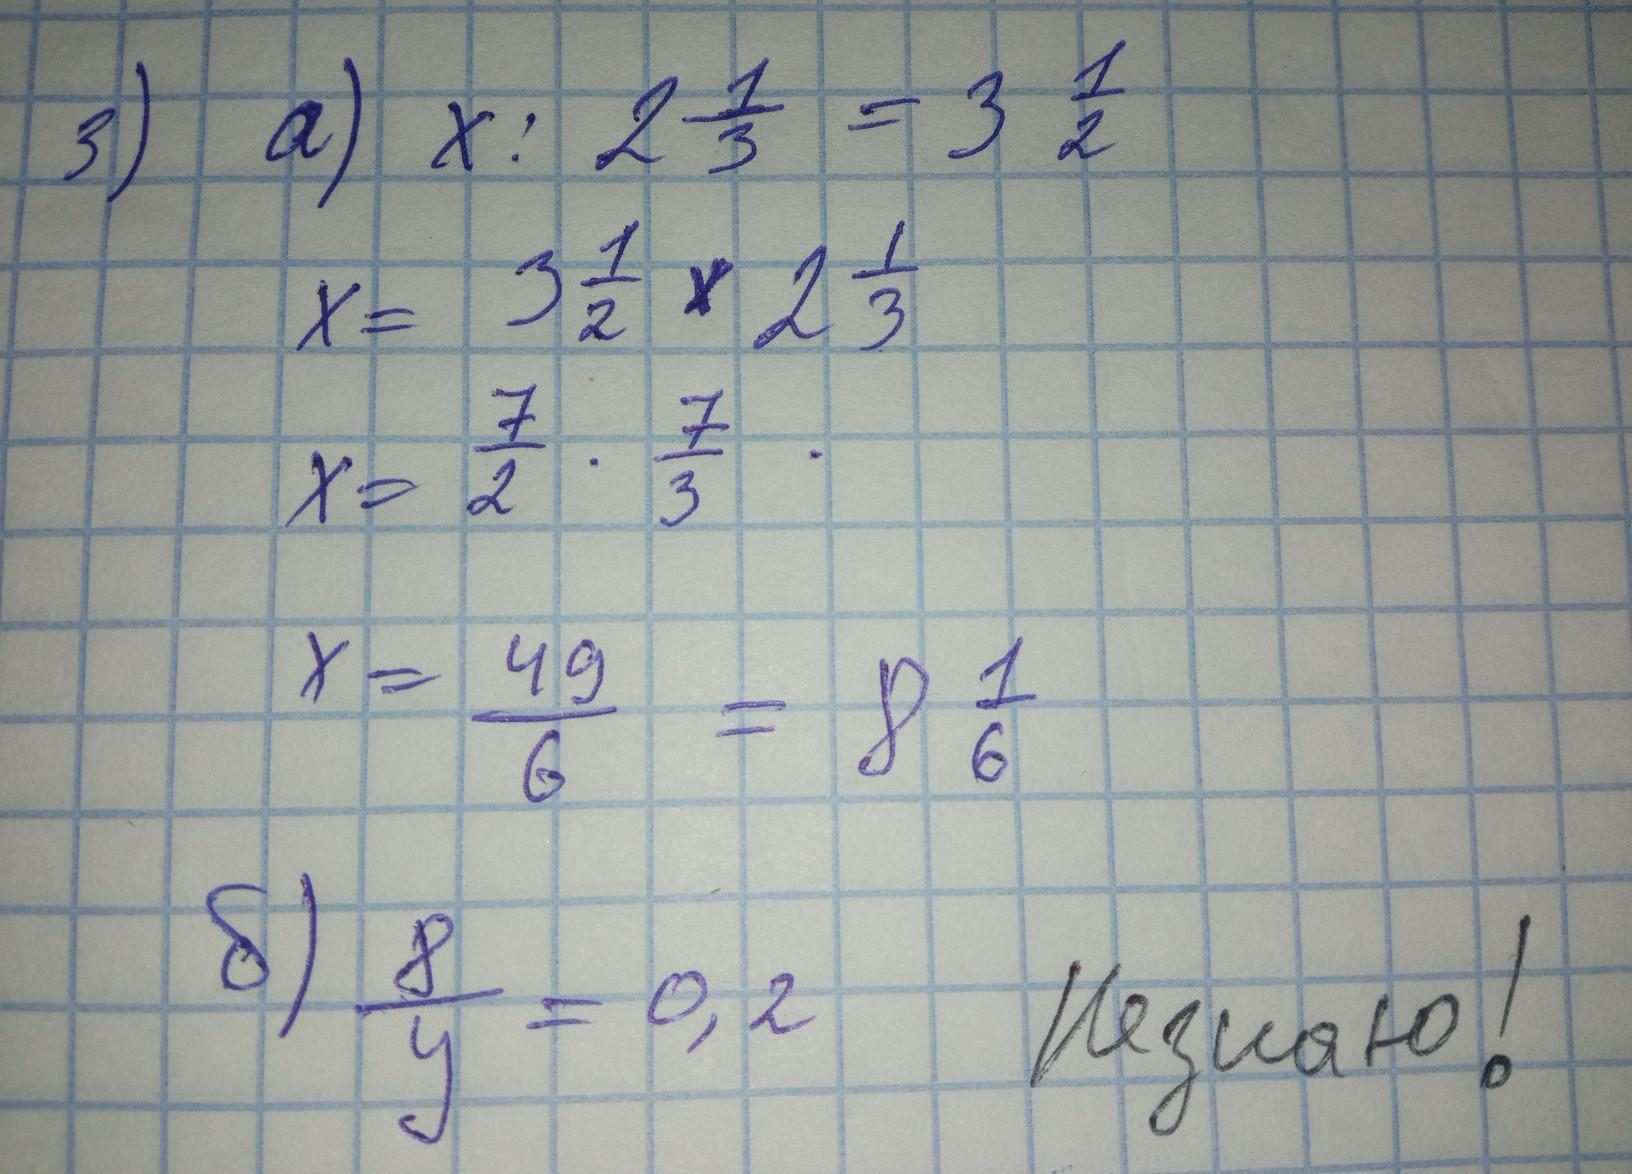 3) а) x : 2 1/3 = 3 1/2
x = 3 1/2 × 2 1/3
x = 7/2 · 7/3 ·
x = 49/6 = 8 1/6
б) 8/y = 0,2 Незнаю!